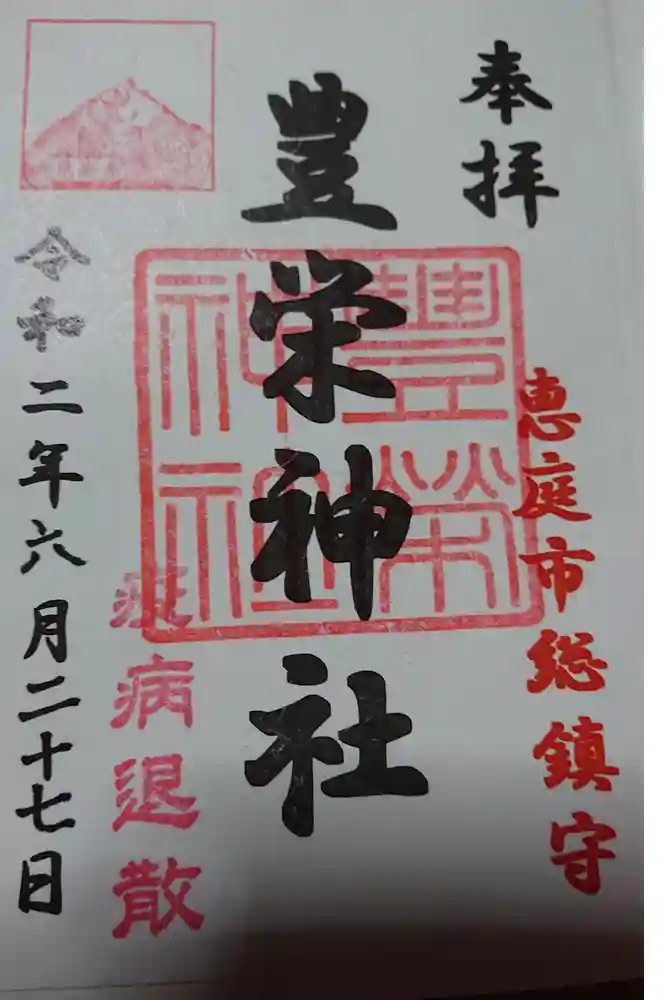 奉拝
恵庭市総鎮守
豊栄神社
豊榮神社
疫病退散
令和二年六月二十七日